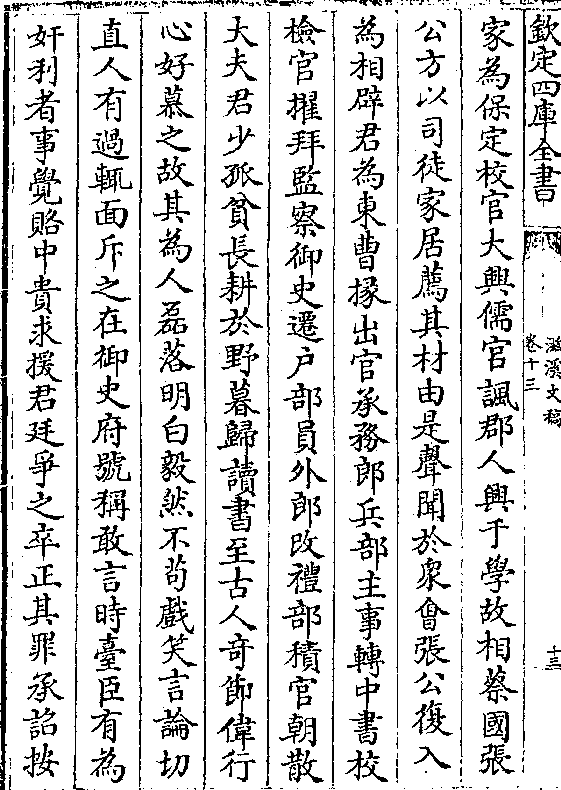 欽定四庫全書
滋溪文稿
卷十三
十三
家為保定校官大興儒官諷郡人興于學故相蔡國張
公方以司徒家居薦其材由是聲聞於衆會張公復入
為相辟君為東曹掾出官承務郎兵部主事轉中書校
檢官擢拜監察御史遷户部員外郎改禮部積官朝散
大夫君少孤貧長耕於野暮歸讀書至古人奇節偉行
心好慕之故其為人磊落明白毅然不苟戲笑言論切
直人有過輒面斥之在御史府號稱敢言時臺臣有為
奸利者事覺賂中貴求援君廷爭之卒正其罪承詔按